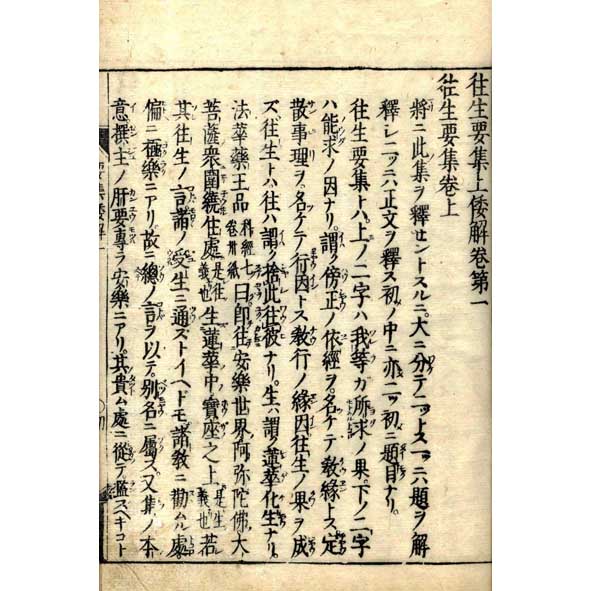 往生要集上倭解卷第一
往生要集卷上
將ニ此集ヲ釋セントスルニ。大ニ分テ二ットス一ッニハ題ヲ解
釋シ二ッニハ正文ヲ釋ス初ノ中ニ亦二ッ初ニ題目ナリ。
往生要集トハ。上ノ二字ハ我等カ所求ノ果。下ノ二字
ハ能求ノ因ナリ。謂ク傍正ノ依經ヲ。名ケテ教緣トス定
散事理ヲ。名ケテ行因トス教行ノ緣因往生ノ果ヲ成
ズ往生トハ往ハ謂ク捨此往彼ナリ。生ハ謂ク蓮華化生ナリ。
法華藥王品 科經七卷卅紙 曰卽往安樂世界阿弥陀佛大
菩薩衆圍繞住處 是往義也 生蓮華中寶座之上 是生義也 若
其往生ノ言諸ノ受生ニ通ズトイヘドモ諸教ニ勸ムル處。
偏ニ極樂ニアリ。故ニ總ノ言ヲ以テ。別名ニ屬ス。又集ノ本
意撰主ノ肝要專ラ安樂ニアリ。其貴ム處ニ從テ濫スヘキコト
要集倭解一